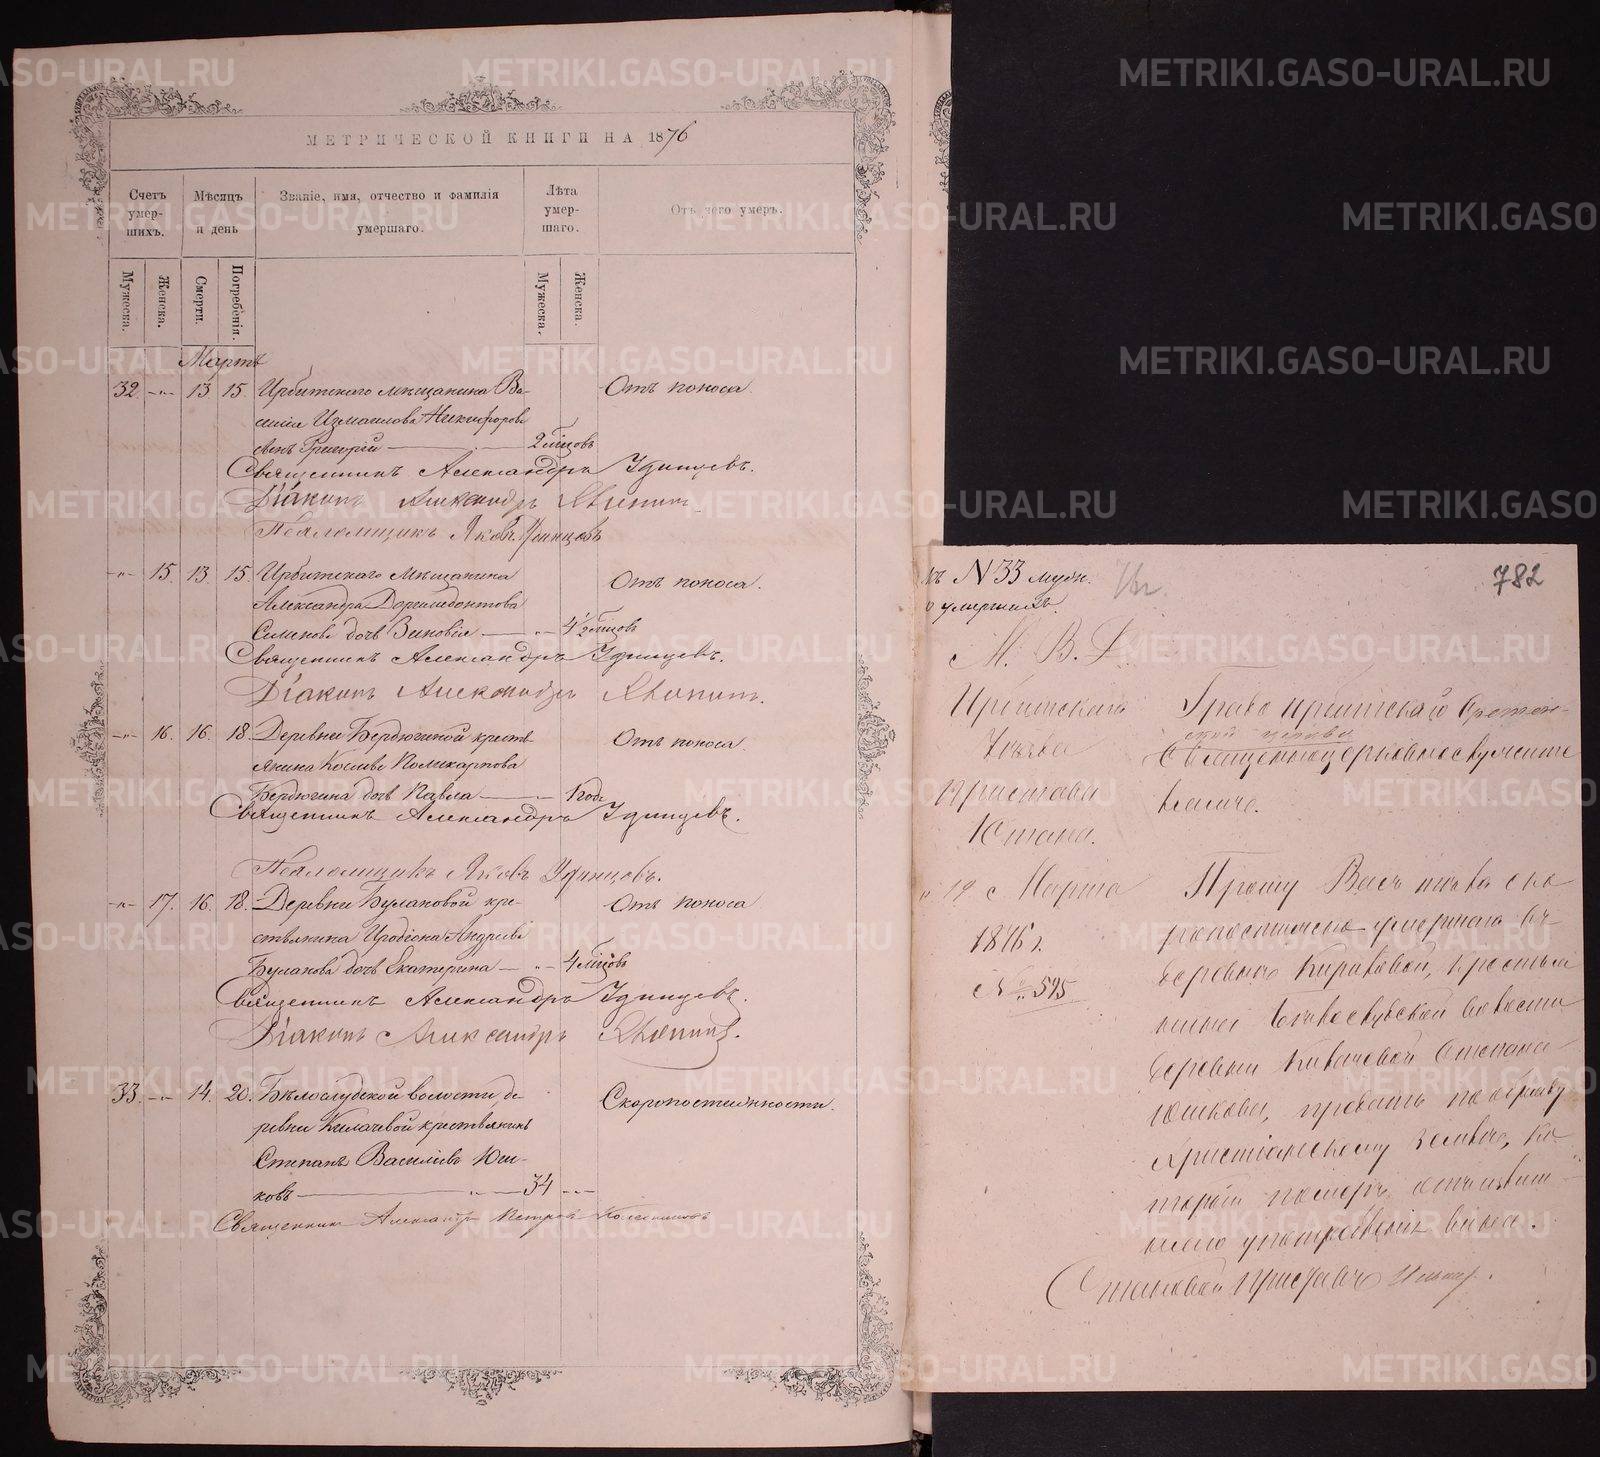 МЕТРИЧЕСКОЙ КНИГИ НА 1876
Счетъ умер-шихъ.
Мѣсяцъ и день
Званіе, имя, отчество и фамилія умершаго.
Лѣта умер-шаго.
Отъ чего умеръ.
Мужеска.
Женска.
Смерти.
Погребенія.
Мужеска.
Женска.
Мартъ
32. -"- 13 15. Ирбитскаго мѣщанина Ва- Отъ поноса.
силія Измаилова Никифорова
сынъ Григорій — 2 мѣсцовъ
Священникъ Александръ Удинцевъ.
Діаконъ Александръ
Псаломщикъ Яковъ Удинцовъ
-"- 15. 13. 15. Ирбитскаго Мѣщанина Отъ поноса.
Александра Доримедонтова
дочь Зиновія — " — 4 1/2 мѣсцовъ
Священникъ Александръ Удинцевъ.
Діаконъ Александръ
-"- 16. 16. 18. Деревни Бердюгиной кресть- Отъ поноса.
янина Космы Поликарпова
Бердюгина дочь Павла — 1 год.
Священникъ Александръ Удинцевъ.
Псаломщикъ Яковъ Удинцовъ.
-"- 17. 16. 18. Деревни Булановой кре- Отъ поноса
стьянина Иродіона Андреева
Буланова дочь Екатерина — " — 4 мѣсцовъ
Священникъ Александръ Удинцевъ.
Діаконъ Александръ
33. -"- 14. 20. Бѣлослудской волости, де- Скоропостижности.
ревни Килачевой крестьянинъ
Степанъ Василіевъ Юш-
ковъ — " — 34 -"-
Священникъ Александръ Петровъ
Къ N 33 муж.
о умершихъ.
782
М. В. Д.
Ирбитскаго
Уѣзда
Пристава
Стана.
" 19 " Марта
1876 г.
N 595
Ирбитской Срѣтен-
ской церкви
Священноцерковнослужите
лямъ.
Прошу Васъ тѣло ско
ропостижно умершаго въ
деревнѣ Кириковой, крестья
нина Бѣлослудской волости
деревни Килачевой Степана
Юшкова, предать по обряду
Христіанскому землѣ, ко
торый померъ отъ излиш
няго употребленія вина.
Становой Приставъ
METRIKI.GASO-URAL.RU